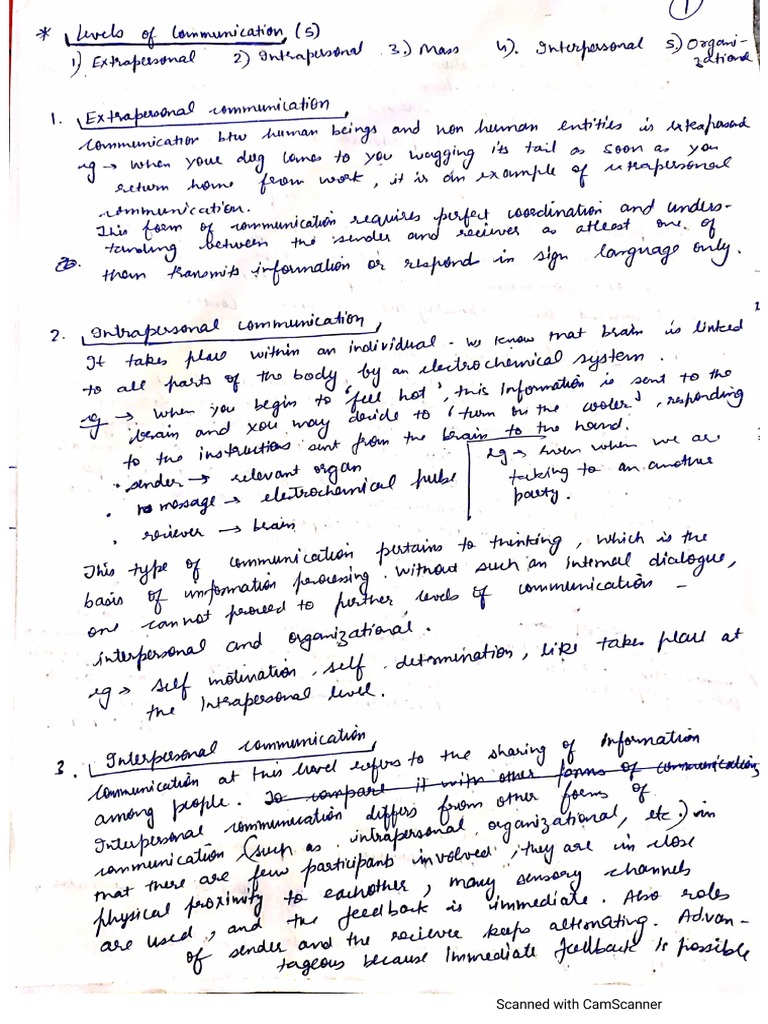 1
* Levels of Communication (5)
1) Extrapersonal 2) Intrapersonal 3.) Mass 4). Interpersonal 5.) Organi-
zational
1. Extrapersonal communication
Communication btw human beings and non human entities is
eg → when your dog comes to you wagging its tail as soon as you
return home from work, it is an example of extrapersonal
communication.
This form of communication requires perfect coordination and unders-
tanding between the sender and reciever as atleast one of
them transmits information or respond in sign language only.
2. Intrapersonal communication
It takes place within an individual. We know that brain is linked
to all parts of the body by an electrochemical system.
eg → when you begin to 'feel hot', this information is sent to the
brain and you may decide to 'turn on the cooler', responding
to the instructions sent from the brain to the hand.
• sender → relevant organ
• message → electrochemical pulse
• reciever → brain
eg → Even when we are
talking to an another
party.
This type of communication pertains to thinking, which is the
basis of information processing. Without such an internal dialogue,
one cannot proceed to further levels of communication –
interpersonal and organizational.
eg → self motivation, self determination, like takes place at
the Intrapersonal level.
3. Interpersonal communication
Communication at this level refers to the sharing of Information
among people. To compare it with other forms of communication,
Interpersonal communication differs from other forms of
communication (such as intrapersonal, organizational, etc.) in
that there are few participants involved, they are in close
physical proximity to eachother, many sensory channels
are used, and the feedback is immediate. Also roles
of sender and the reciever keeps alternating. Advan-
tageous because immediate feedback is possible
Scanned with CamScanner